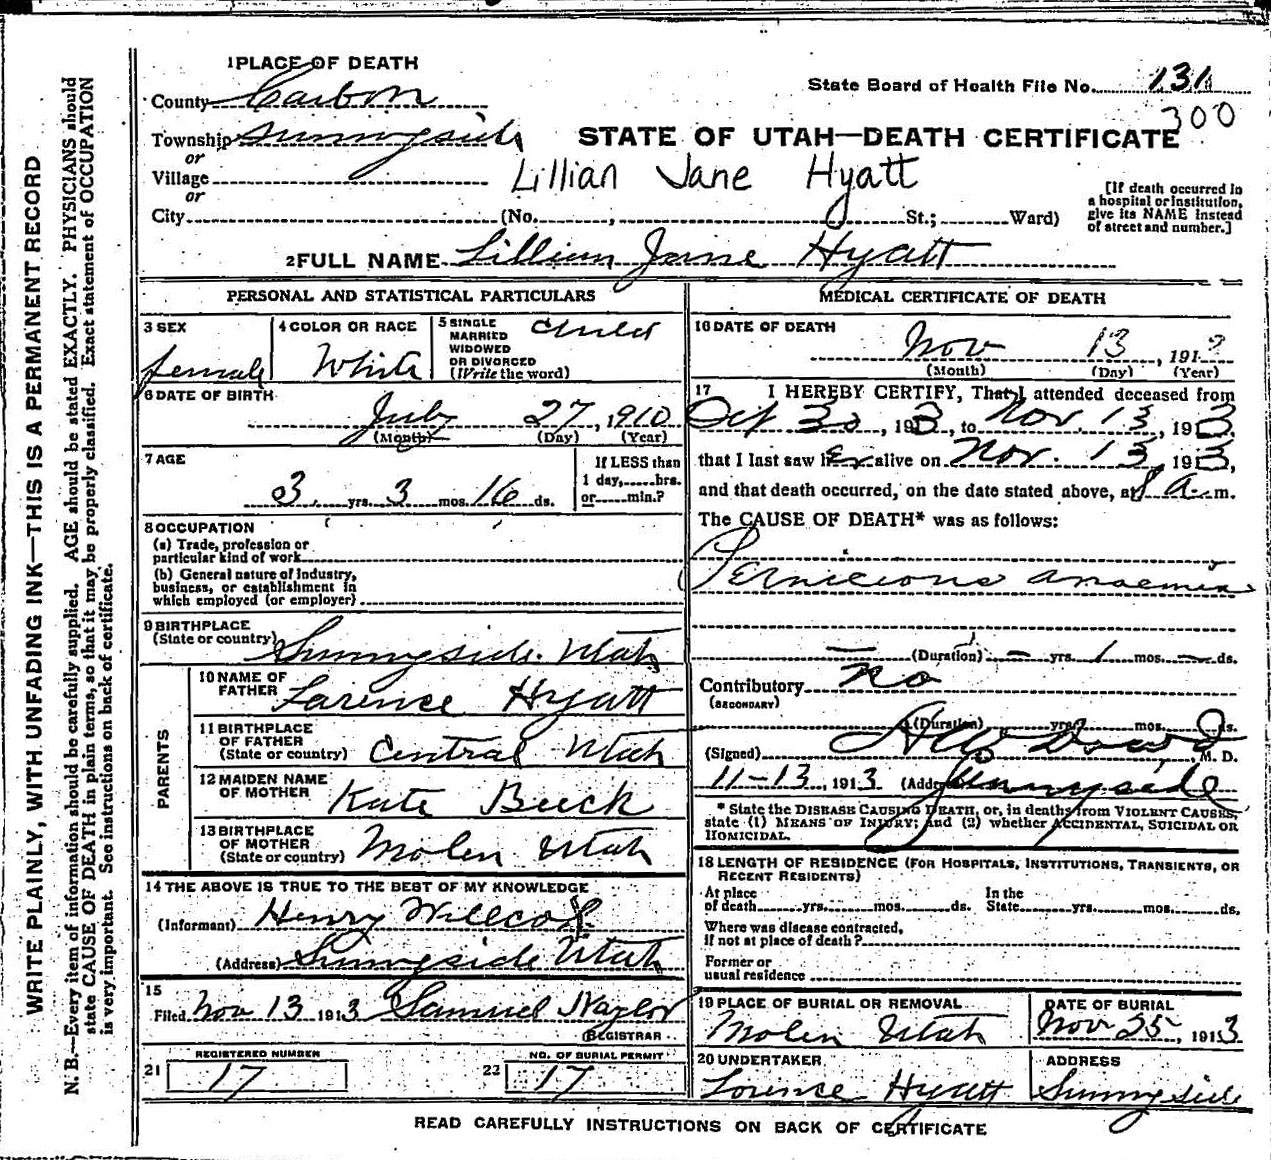 1 PLACE OF DEATH
County Carbon
State Board of Health File No. 131
300
Township Sunnyside
or
STATE OF UTAH—DEATH CERTIFICATE
Village
or
Lillian Jane Hyatt
City (No. , St.; Ward)
[If death occurred in
a hospital or institution,
give its NAME instead
of street and number.]
2 FULL NAME Lillian Jane Hyatt
PERSONAL AND STATISTICAL PARTICULARS
3 SEX
female
4 COLOR OR RACE
White
5 SINGLE
MARRIED
WIDOWED
OR DIVORCED
(Write the word)
Child
6 DATE OF BIRTH
July 27, 1910
(Month) (Day) (Year)
7 AGE
3 yrs. 3 mos. 16 ds.
If LESS than
1 day, hrs.
or min.?
8 OCCUPATION
(a) Trade, profession or
particular kind of work
(b) General nature of industry,
business, or establishment in
which employed (or employer)
9 BIRTHPLACE
(State or country) Sunnyside Utah
PARENTS
10 NAME OF
FATHER Larence Hyatt
11 BIRTHPLACE
OF FATHER
(State or country) Central Utah
12 MAIDEN NAME
OF MOTHER Kate Beeck
13 BIRTHPLACE
OF MOTHER
(State or country) Molen Utah
14 THE ABOVE IS TRUE TO THE BEST OF MY KNOWLEDGE
(Informant) Henry Willcox
(Address) Sunnyside Utah
15
Filed Nov 13 1913 Samuel Naylor
REGISTRAR
REGISTERED NUMBER
21 17
NO. OF BURIAL PERMIT
22 17
MEDICAL CERTIFICATE OF DEATH
16 DATE OF DEATH
Nov 13, 191
(Month) (Day) (Year)
17 I HEREBY CERTIFY, That I attended deceased from
Oct 30, 1913, to Nov. 13, 1913,
that I last saw her alive on Nov. 13, 1913,
and that death occurred, on the date stated above, at 8 a.m.
The CAUSE OF DEATH* was as follows:
Pernicious anaemia
(Duration) — yrs. 1 mos. — ds.
Contributory No
(SECONDARY)
(Duration) yrs. mos. ds.
(Signed) M. D.
11-13, 1913 (Address) Sunnyside
* State the DISEASE CAUSING DEATH, or, in deaths from VIOLENT CAUSES,
state (1) MEANS OF INJURY; and (2) whether ACCIDENTAL, SUICIDAL OR
HOMICIDAL.
18 LENGTH OF RESIDENCE (FOR HOSPITALS, INSTITUTIONS, TRANSIENTS, OR
RECENT RESIDENTS)
At place
of death yrs. mos. ds.
In the
State yrs. mos. ds.
Where was disease contracted,
If not at place of death?
Former or
usual residence
19 PLACE OF BURIAL OR REMOVAL
Molen Utah
DATE OF BURIAL
Nov 25, 1913
20 UNDERTAKER
Lorence Hyatt
ADDRESS
Sunnyside
READ CAREFULLY INSTRUCTIONS ON BACK OF CERTIFICATE
WRITE PLAINLY, WITH UNFADING INK—THIS IS A PERMANENT RECORD
N. B.—Every item of information should be carefully supplied. AGE should be stated EXACTLY. PHYSICIANS should
state CAUSE OF DEATH in plain terms, so that it may be properly classified. Exact statement of OCCUPATION
is very important. See instructions on back of certificate.